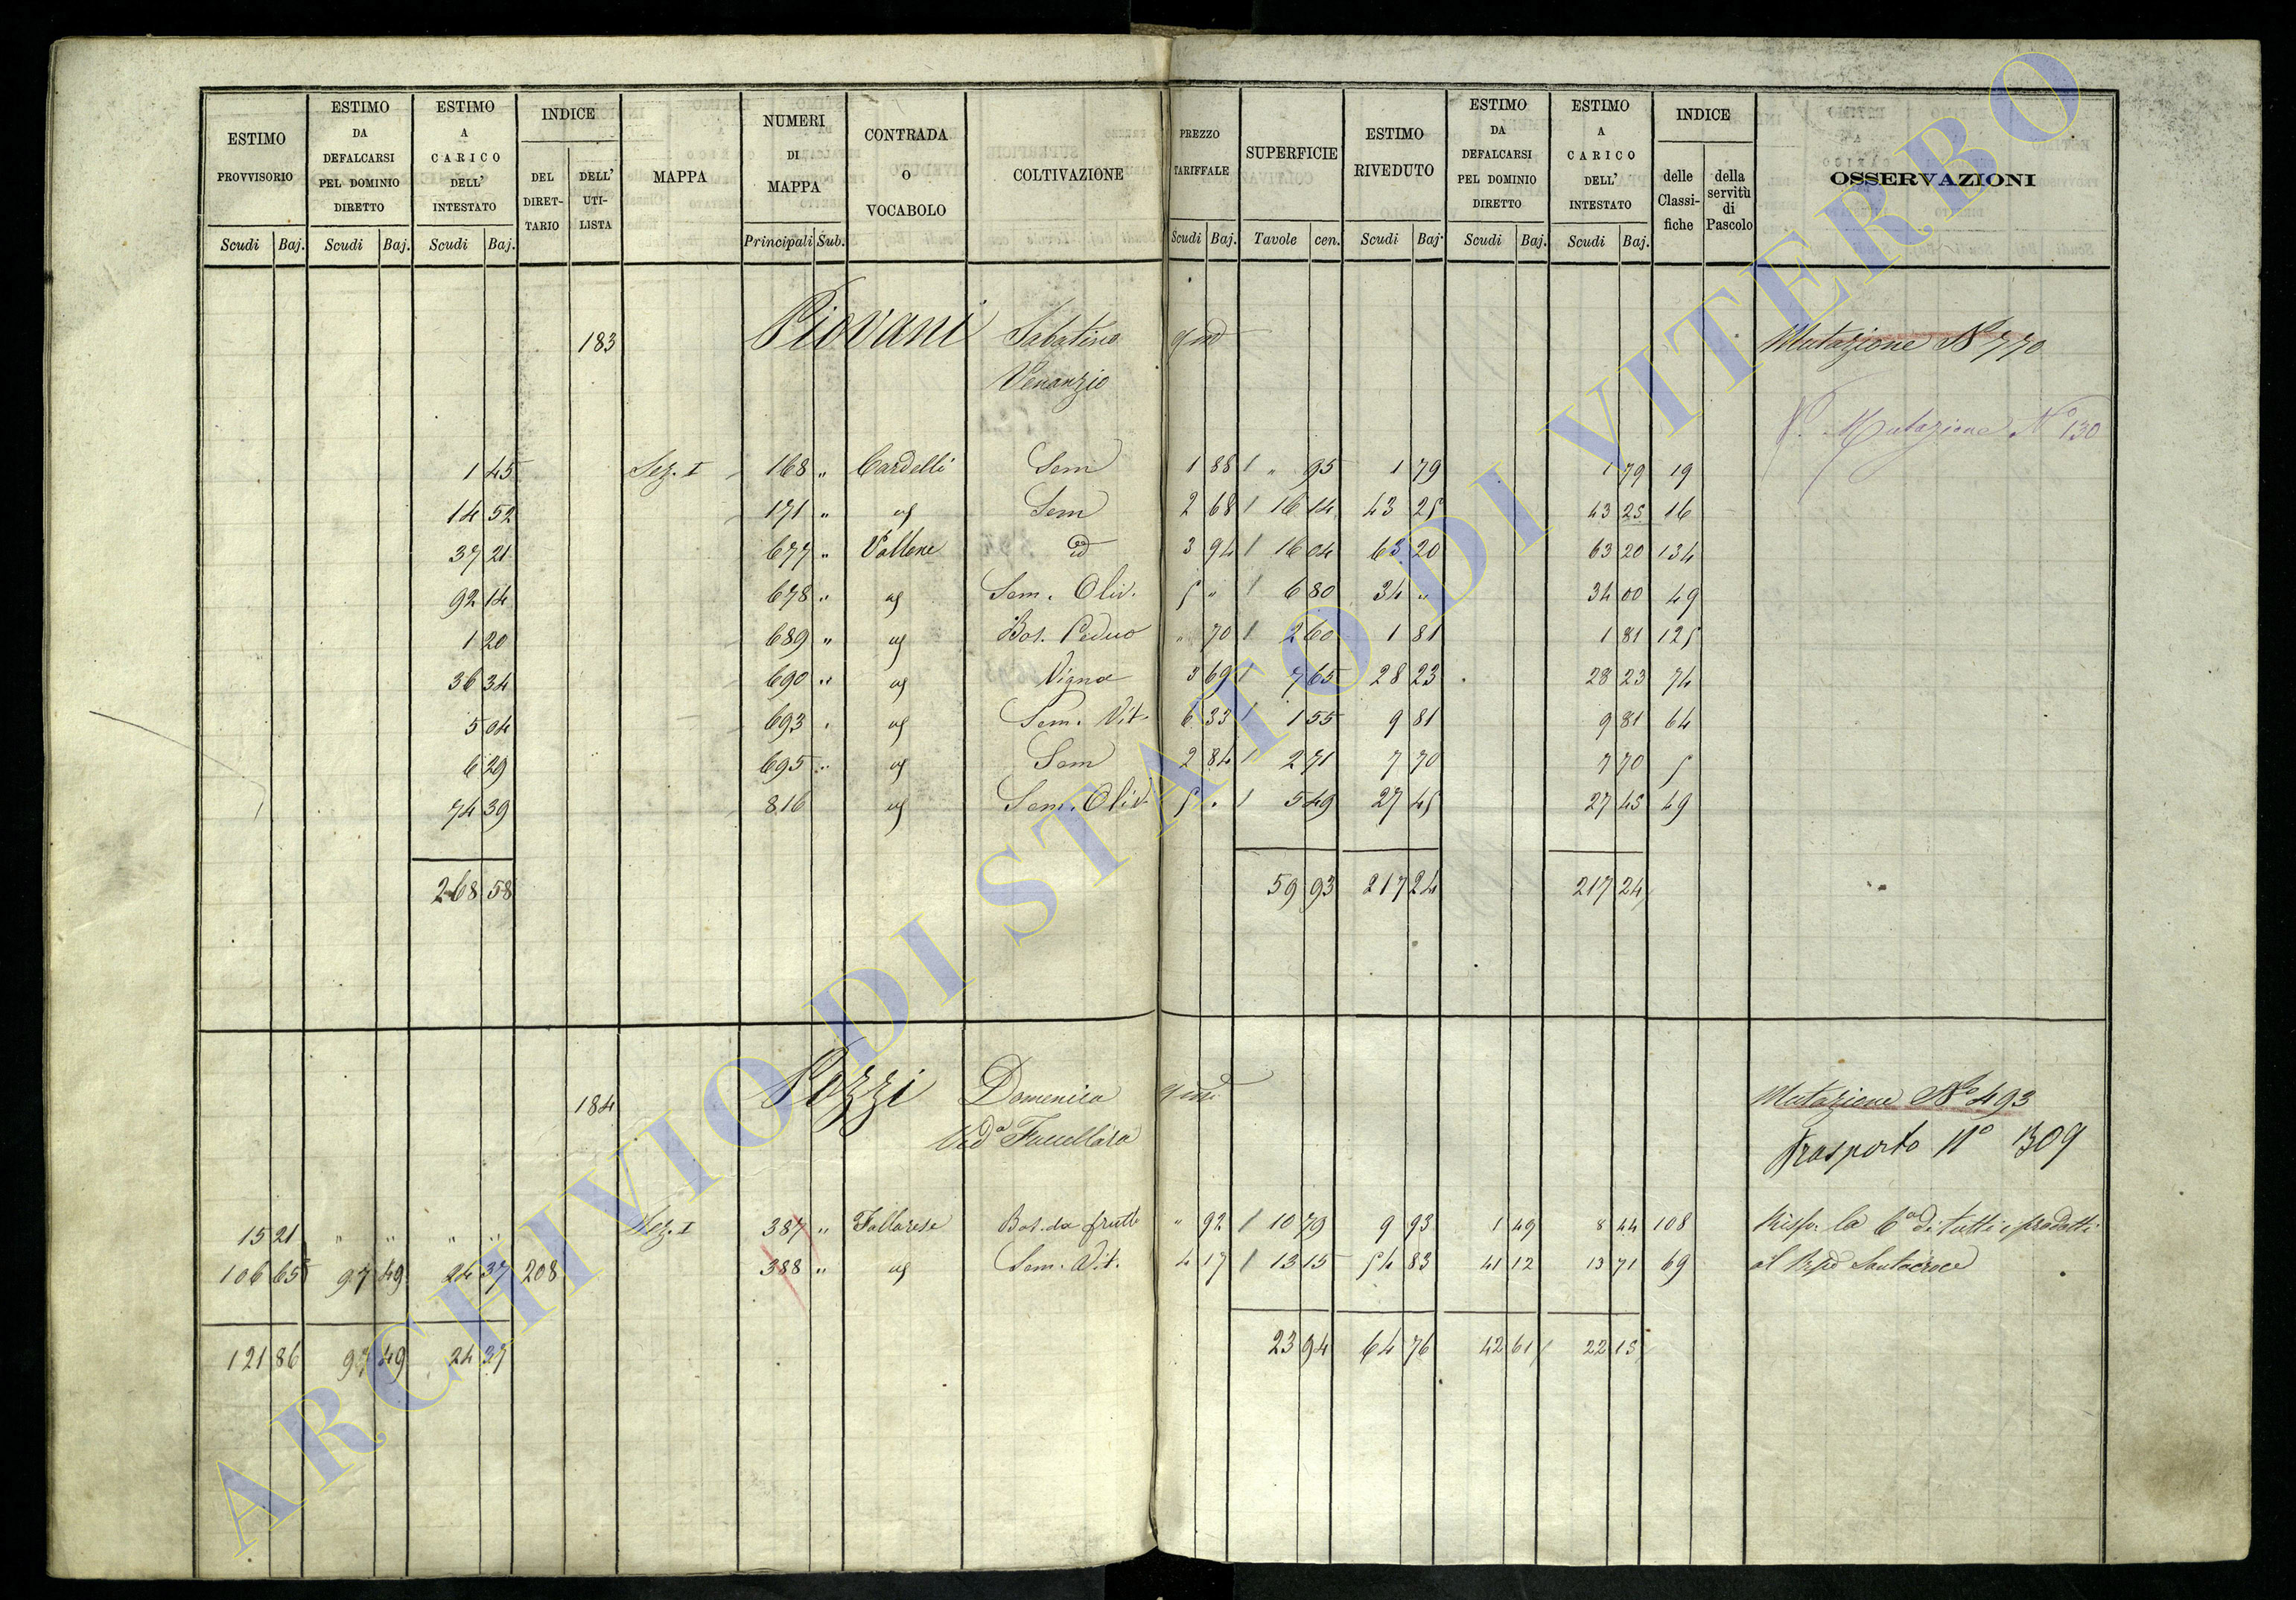 ESTIMO PROVVISORIO | ESTIMO DA DEFALCARSI PEL DOMINIO DIRETTO | ESTIMO A CARICO DELL' INTESTATO | INDICE | MAPPA | NUMERI DI MAPPA | CONTRADA O VOCABOLO | COLTIVAZIONE | PREZZO TARIFFALE | SUPERFICIE | ESTIMO RIVEDUTO | ESTIMO DA DEFALCARSI PEL DOMINIO DIRETTO | ESTIMO A CARICO DELL' INTESTATO | INDICE | OSSERVAZIONI
DEL DIRETTARIO | DELL' UTILISTA | delle Classifiche | della servitù di Pascolo
Scudi | Baj. | Scudi | Baj. | Scudi | Baj. | Principali | Sub. | Scudi | Baj. | Tavole | cen. | Scudi | Baj. | Scudi | Baj. | Scudi | Baj.
183 Piovani Sabatino qm Mutazione No 770
Venanzio
Mutazione No 130
1 45 Sez. I 168 " Cardelli Sem 1 88 " 95 1 79 1 79 19
14 52 171 " Sem 2 68 16 14 43 25 43 25 16
37 21 677 " Vallone id 3 94 16 04 63 20 63 20 134
92 14 678 " Sem. Oliv. 5 " 6 80 34 " 34 00 49
1 20 689 " Bos. Ceduo " 70 2 60 1 81 1 81 125
36 34 690 " Vigna 3 69 7 65 28 23 28 23 74
5 04 693 " Sem. Vit. 6 33 1 55 9 81 9 81 64
6 29 695 " Sem 2 84 2 71 7 70 7 70 5
74 39 816 Sem. Oliv. 5 " 5 49 27 45 27 45 49
268 58 59 93 217 24 217 24
184 Pozzi Domenica Mutazione No 493
Veda Trasporto No 1309
15 21 " " " " Sez. I 387 " Bos. da frutto " 92 10 79 9 93 1 49 8 44 108 Risp. la 6a di tutti i prodotti
106 65 97 49 24 37 208 388 " Sem. Vit. 4 17 13 15 54 83 41 12 13 71 69 al Santacroce
121 86 97 49 24 37 23 94 64 76 42 61 22 15
ARCHIVIO DI STATO DI VITERBO